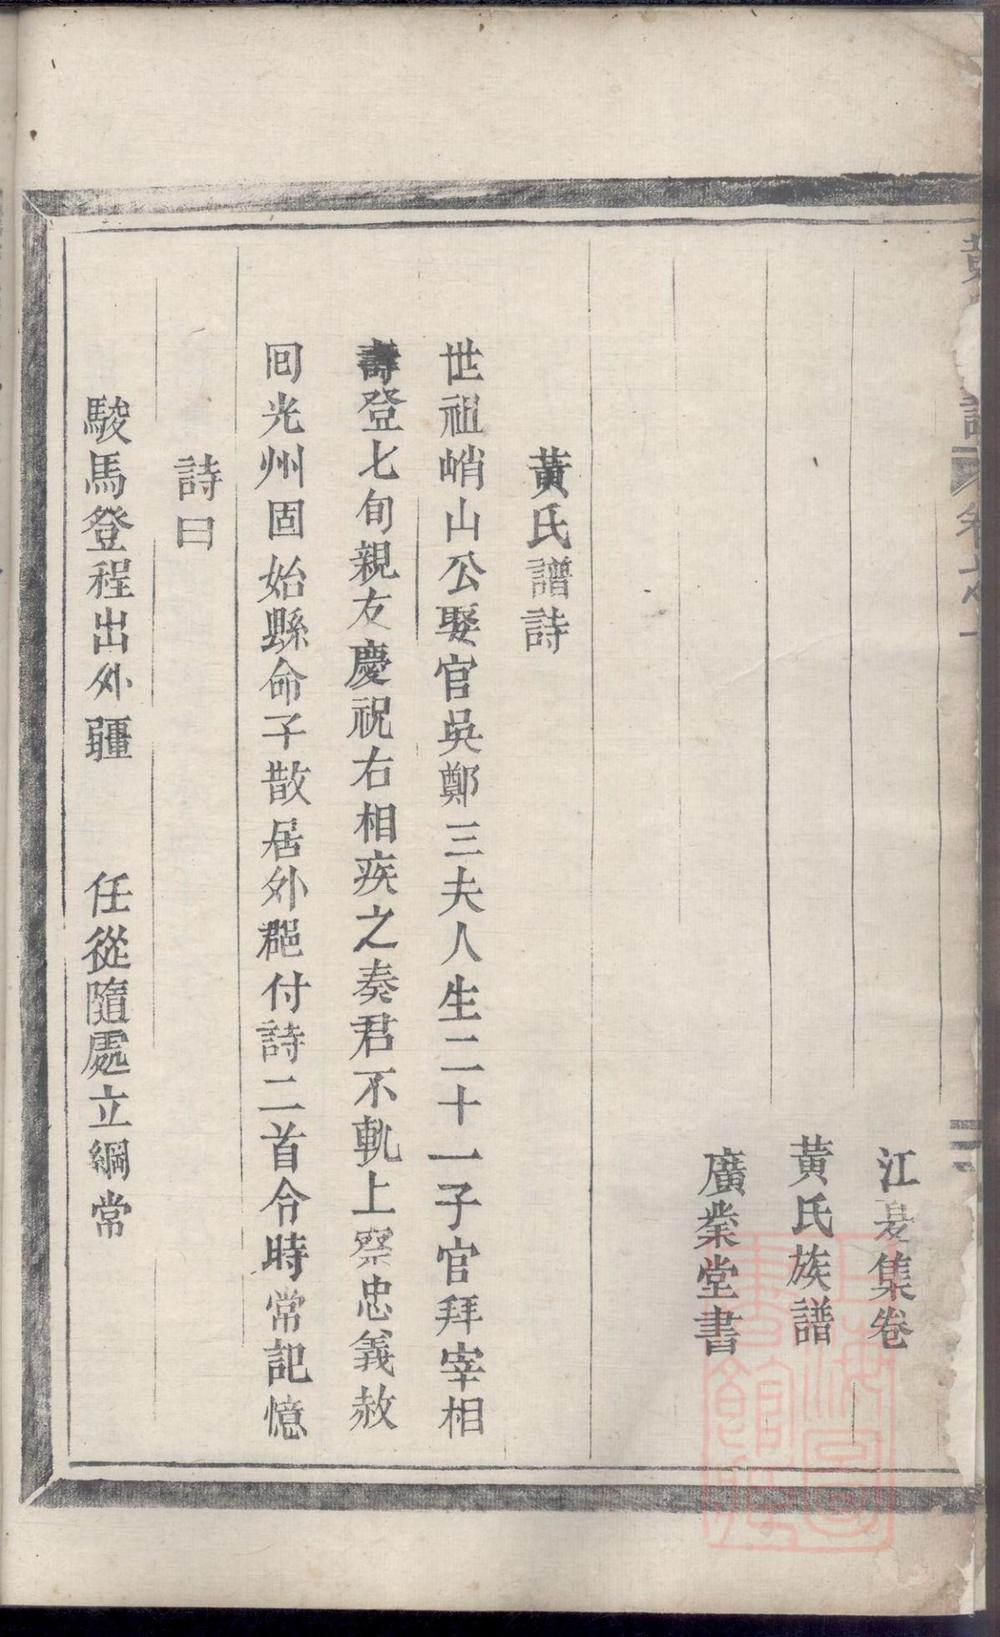 江夏集卷
黄氏族譜
廣業堂書
黄氏譜詩
世祖峭山公娶官吳鄭三夫人生二十一子官拜宰相
壽登七旬親友慶祝右相疾之奏君不軌上察忠義赦
回光州固始縣命子散居外郡付詩二首令時常記憶
詩曰
駿馬登程出外疆　任從隨處立綱常